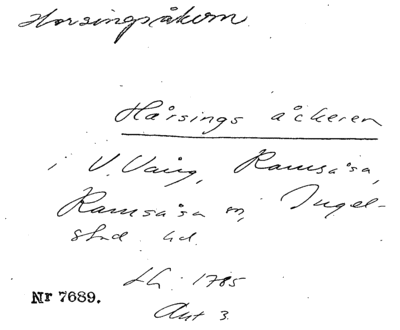 Horsingsåkern
Hårsings åckeren
i V. Vång, Ramsåsa,
Ramsåsa sn, Ingel-
stad hd.
LH: 1785
Akt 3.
Nr 7689.